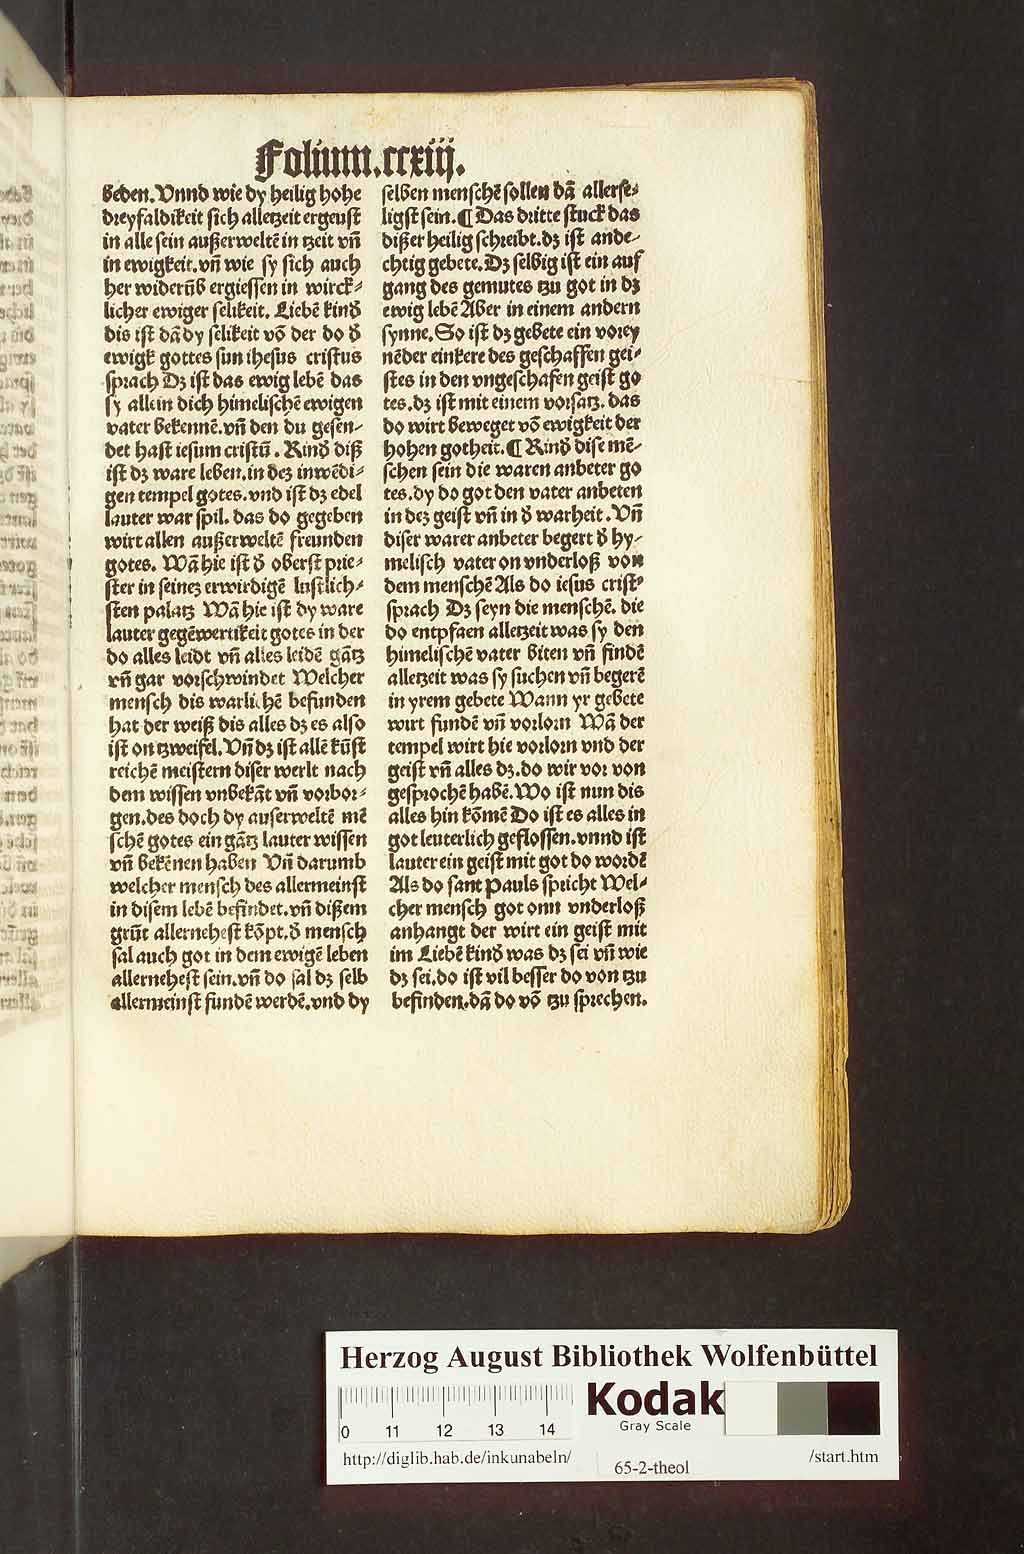 Folium.ccxiij.
beden. Vnnd wie dy heilig hohe
dreyfaldikeit sich alletzeit ergeust
in alle sein außerweltē in tzeit vñ
in ewigkeit. vñ wie sy sich auch
her widerūb ergiessen in wirck⸗
licher ewiger selikeit. Liebē kindꝰ
dis ist dā dy selikeit vō der do ð
ewigk gottes sun ihesus cristus
sprach Dʒ ist das ewig lebē das
sy allein dich himelischē ewigen
vater bekennē. vñ den du gesen⸗
det hast iesum cristū. Kindꝰ diß
ist dʒ ware leben. in deʒ inwēdi⸗
gen tempel gotes. vnd ist dʒ edel
lauter war spil. das do gegeben
wirt allen außerweltē freunden
gotes. Wā hie ist ð oberst prie⸗
ster in seineʒ erwirdigē lustlich⸗
sten palatz Wā hie ist dy ware
lauter gegēwertikeit gotes in der
do alles leidt vñ alles leidē gātz
vñ gar vorschwindet Welcher
mensch dis warlichē befunden
hat der weiß dis alles dʒ es also
ist on tzweifel. Vñ dʒ ist allē kūst
reichē meistern diser werlt nach
dem wissen vnbekāt vñ vorbor⸗
gen. des doch dy auserweltē mē
schē gotes ein gātz lauter wissen
vñ bekēnen haben Vñ darumb
welcher mensch des allermeinst
in disem lebē befindet. vñ dißem
grūt allernehest kōpt. ð mensch
sal auch got in dem ewigē leben
allernehest sein. vñ do sal dʒ selb
allermeinst fundē werdē. vnd dy
selben menschē sollen dā allerse⸗
ligst sein. ¶ Das dritte stuck das
dißer heilig schreibt. dʒ ist ande⸗
chtig gebete. Dʒ selbig ist ein auf
gang des gemutes tzu got in dʒ
ewig lebē Aber in einem andern
synne. So ist dʒ gebete ein vorey
nēder einkere des geschaffen gei⸗
stes in den vngeschafen geist go
tes. dʒ ist mit einem vorsatz. das
do wirt beweget vō ewigkeit der
hohen gotheit. ¶ Kindꝰ dise mē⸗
schen sein die waren anbeter go
tes. dy do got den vater anbeten
in deʒ geist vñ in ð warheit. Vñ
diser warer anbeter begert ð hy⸗
melisch vater on vnderloß von
dem menschē Als do iesus cristꝰ
sprach Dʒ seyn die menschē. die
do entpfaen alletzeit was sy den
himelischē vater biten vñ findē
alletzeit was sy suchen vñ begerē
in yrem gebete Wann yr gebete
wirt fundē vñ vorlorn Wā der
tempel wirt hie vorlorn vnd der
geist vñ alles dʒ. do wir vor von
gesprochē habē. Wo ist nun dis
alles hin kōmē Do ist es alles in
got leuterlich geflossen. vnnd ist
lauter ein geist mit got do wordē
Als do sant Pauls spricht Wel⸗
cher mensch got onn vnderloß
anhangt der wirt ein geist mit
im Liebē kindꝰ was dʒ sei vñ wie
dʒ sei. do ist vil besser do von tzu
befinden. dā do vō tzu sprechen.
Herzog August Bibliothek Wolfenbüttel
Kodak
Gray Scale
0 11 12 13 14
http://diglib.hab.de/inkunabeln/
65-2-theol
/start.htm